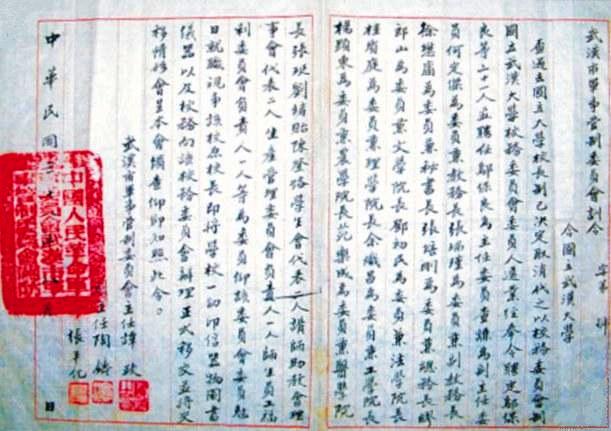 武漢市軍事管制委員會訓令
令國立武漢大學
查過去國立大學校長制已決定取消代之以校務委員會制
國立武漢大學校務委員會委員人選業經本會聘定鄔保
良等二十一人並聘任鄔保良為主任委員查謙為副主任委
員何定傑為委員兼教務長張瑞瑾為委員兼副教務長
徐懋庸為委員兼秘書長張培剛為委員兼總務長繆
郎山為委員兼文學院長鄧初民為委員兼法學院長
桂質庭為委員兼理學院長余熾昌為委員兼工學院長
楊顯東為委員兼農學院長范樂成為委員兼醫學院
長張琁劉緒貽陳登恪學生會代表一人講師助教會理
事會代表二人生產管理委員會負責人一人師生員工福
利委員會負責人一人等為委員仰該委員會委員尅
日就職視事該校原校長即將學校一切印信器物圖書
儀器以及校務向該校務委員會辦理正式移交並將交
移情形會呈本會備查仰即知照此令。
武漢市軍事管制委員會主任譚政
主任陶鑄
張平化
中華民國三
日
中國人民革命軍